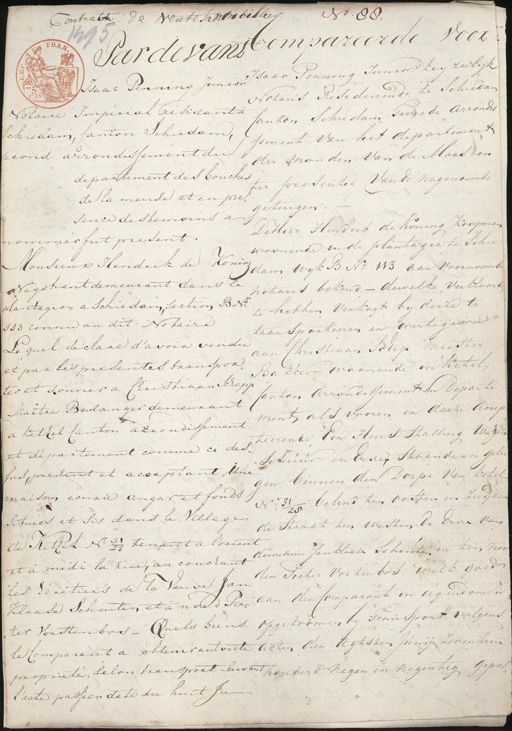 Contrat de Vente N.º 88.
Pardevant
Isaac Penning Junior
Notaire Impérial résidant à
Schiedam, Canton Schiedam,
second arrondissement du
departement des bouches
de la meuse et en pre
sence de temoins a
nommer fut present.
Monsieur Hendrik de Koning
Negotiant demeurant dans le
plantagie a Schiedam, section B Nº
113 connu au dit Notaire
Lequel declare d'avoir vendu
et par les presentes transpor
ter et donner a Christiaan
Maitre Boulanger demeurant
a Ketel Canton arrondissement
et departement comme ci des
sus, present et acceptant, Une
maison et fonds
dans le Village
de Ketel Nº 31/28 tenant a l'orient
et a midi la rue, au couchant
les heritiers de la Veuve Jan
Klaasse Schouten et a nord Pie
ter Vosstenbos. Quels biens
le Comparant a obtenu en toute
proprieté, selon transport suivant
l'acte passé en date du huit Juin
Compareerde Voor
Isaac Penning Junior Keizerlyk
Notaris Resideerende te Schiedam
Canton Schiedam, Tweede Arrondis
sement van het departement
der monden van de Maas en
ter presentie van de nagenoemde
getuigen. —
De Heer Hendrik de Koning Koopman
woonende in de plantagie te Schie
dam wyk B Nº 113 aan voornoemde
notaris bekend — dewelke verklaarde
te hebben verkogt by deeze te
transporteeren en overtegeeven
aan Christiaan meester
Bakker woonende in Ketel,
Canton Arrondissement en Departe
ment als vooren en deeze
Een Huis
en Erve staande en gele
gen binnen den Dorpe van Ketel
Nº 31/28 belend ten oosten en zuyden
de straat ten westen de Erve van
de weduwe Jan Klaasse Schouten en ten noor
den Pieter Vosstenbos welk goed
aan den Comparant in eigendom is
opgekomen by Transport volgens
acte den agtsten Junij Zeventien
honderd negen en negentig gepas